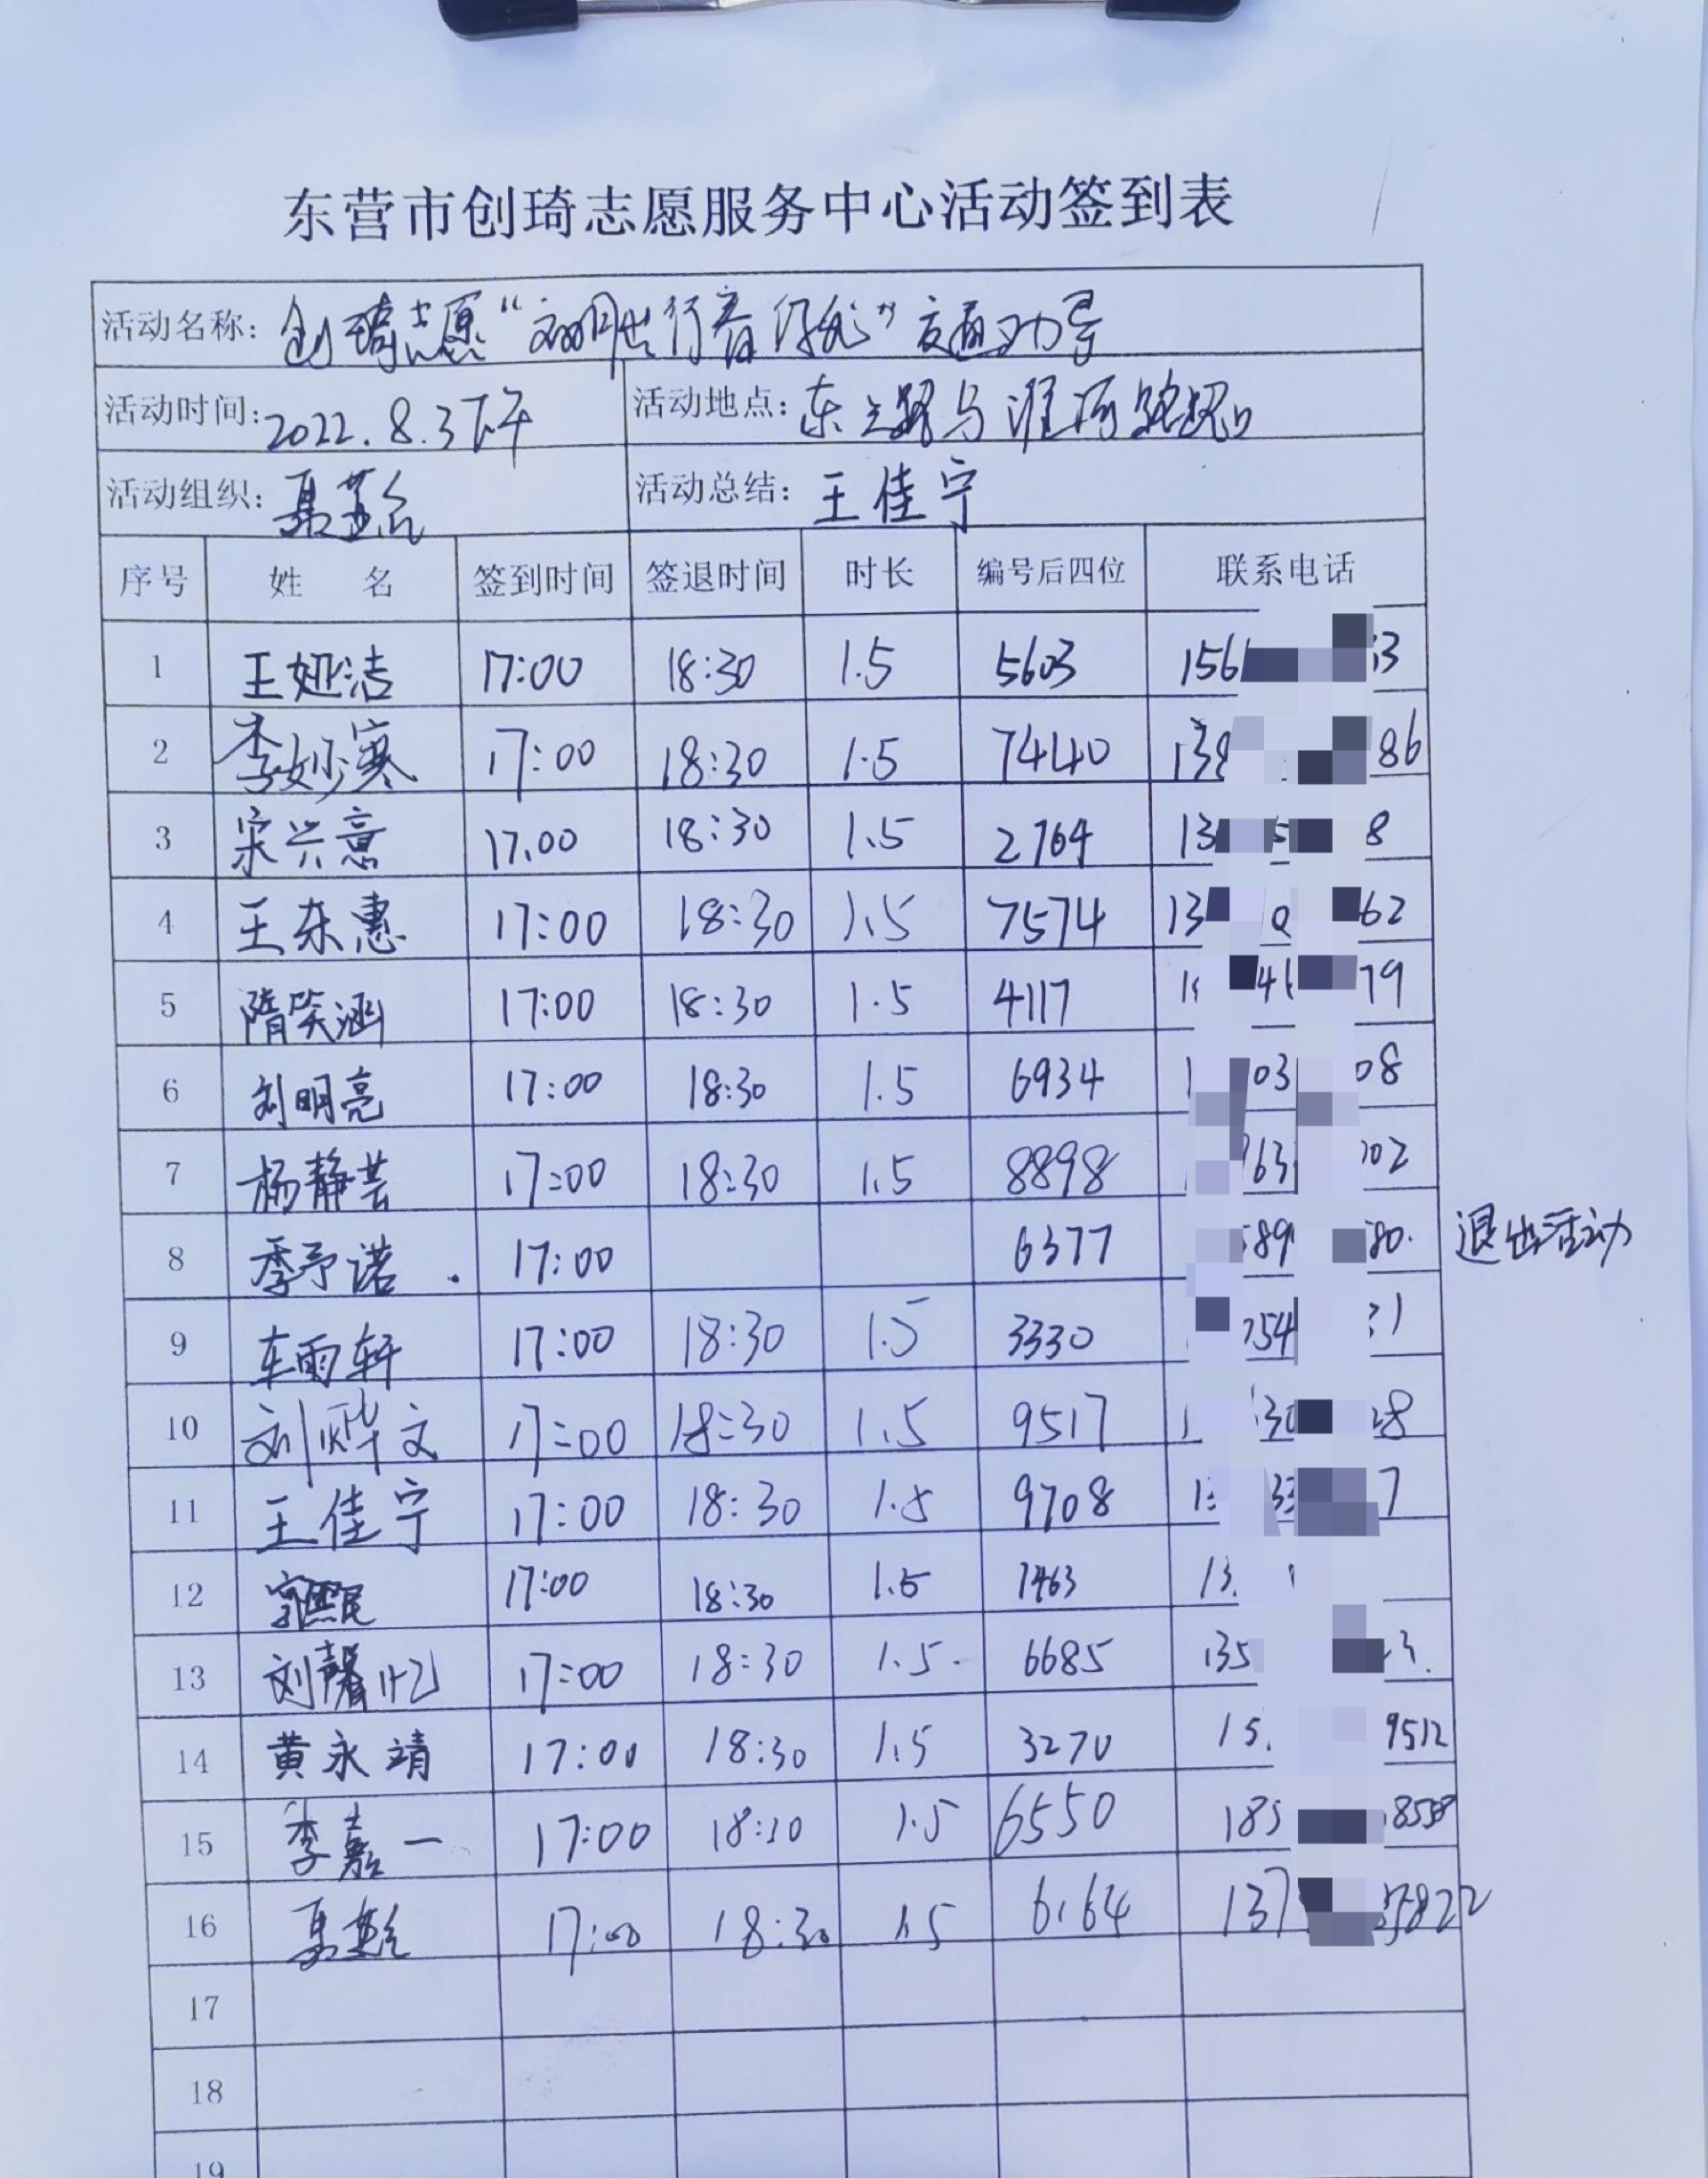 东营市创琦志愿服务中心活动签到表
活动名称: 创琦志愿“文明出行看我”交通劝导
活动时间: 2022.8.3下午 活动地点: 东三路与淮河路路口
活动组织: 活动总结: 王佳宁
序号 姓 名 签到时间 签退时间 时长 编号后四位 联系电话
1 王娅洁 17:00 18:30 1.5 5603 156 3
2 李妙寒 17:00 18:30 1.5 7440 138 86
3 宋兴意 17.00 18:30 1.5 2764 13 5 8
4 王东惠 17:00 18:30 1.5 7574 13 0 62
5 隋笑涵 17:00 18:30 1.5 4117 1 41 79
6 刘明亮 17:00 18:30 1.5 6934 1 03 08
7 杨静芸 17:00 18:30 1.5 8898 63 02
8 季予诺 . 17:00 6377 589 80. 退出活动
9 车雨轩 17:00 18:30 1.5 3330 254 1
10 刘烨文 17:00 18:30 1.5 9517 1 30 28
11 王佳宁 17:00 18:30 1.5 9708 13 33 7
12 17:00 18:30 1.5 7463 13
13 刘馨忆 17:00 18:30 1.5. 6685 135 3.
14 黄永靖 17:00 18:30 1.5 3270 15 9512
15 李嘉一 17:00 18:30 1.5 6550 185 8558
16 17:00 18:30 1.5 6164 137 5822
17
18
19